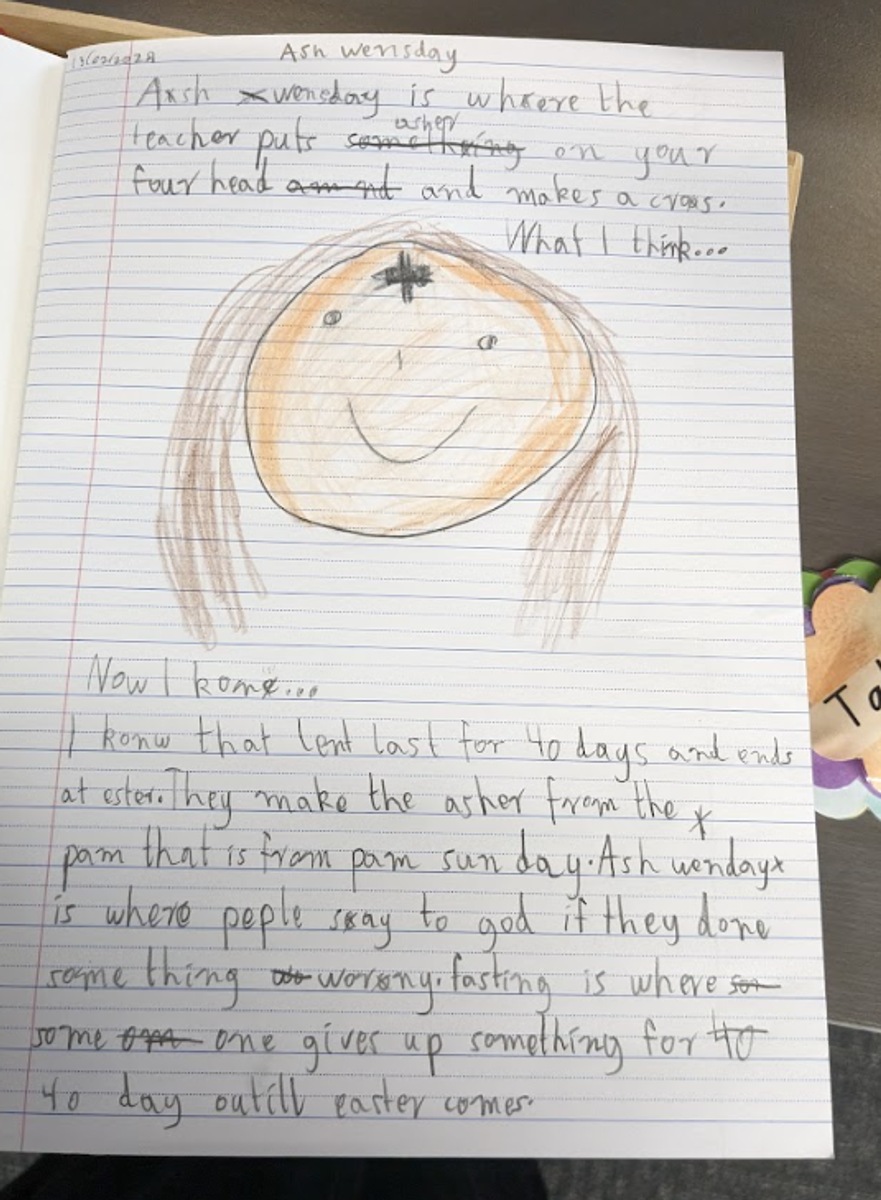 13/02/2024
Ash wensday
Ash wensday is where the
asher
teacher puts something on your
four head am nd and makes a cross.
What I think...
Now I kone...
I konw that lent last for 40 days and ends
at ester. They make the asher from the
pam that is from pam sun day. Ash wenday
is where peple say to god if they done
some thing worony. fasting is where
some one gives up something for 40
40 day outill easter comes.
Ta